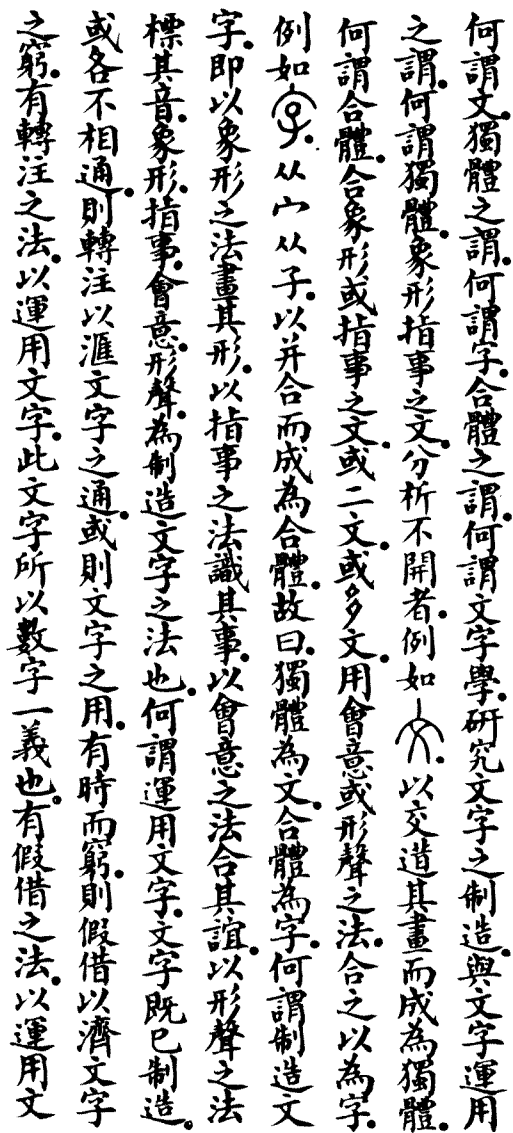 何謂文。獨體之謂。何謂字。合體之謂。何謂文字學。研究文字之制造。與文字運用
之謂。何謂獨體。象形指事之文。分析不開者。例如文。以交造其畫而成為獨體。
何謂合體。合象形或指事之文。或二文。或多文。用會意或形聲之法。合之以為字。
例如字。从宀从子。以并合而成為合體。故曰。獨體為文。合體為字。何謂制造文
字。即以象形之法畫其形。以指事之法識其事。以會意之法合其誼。以形聲之法
標其音。象形。指事。會意。形聲。為制造文字之法也。何謂運用文字。文字既已制造。
或各不相通。則轉注以滙文字之通。或則文字之用。有時而窮。則假借以濟文字
之窮。有轉注之法。以運用文字。此文字所以數字一義也。有假借之法。以運用文